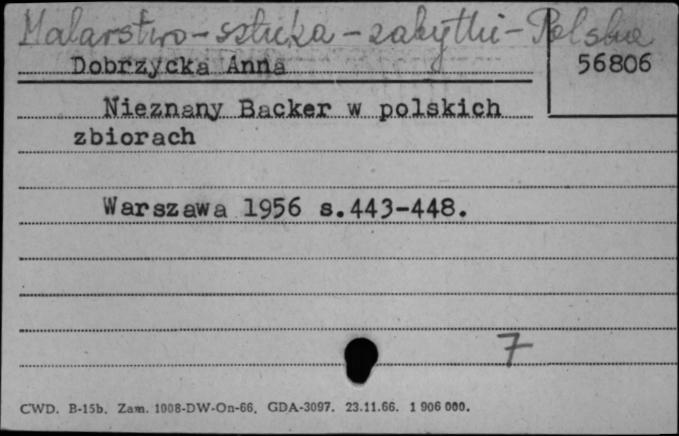 Malarstwo - sztuka - zabytki - Polskie
Dobrzycka Anna
56806
Nieznany Backer w polskich
zbiorach
Warszawa 1956 s.443-448.
7
CWD. B-15b. Zam. 1008-DW-On-66. GDA-3097. 23.11.66. 1 906 000.